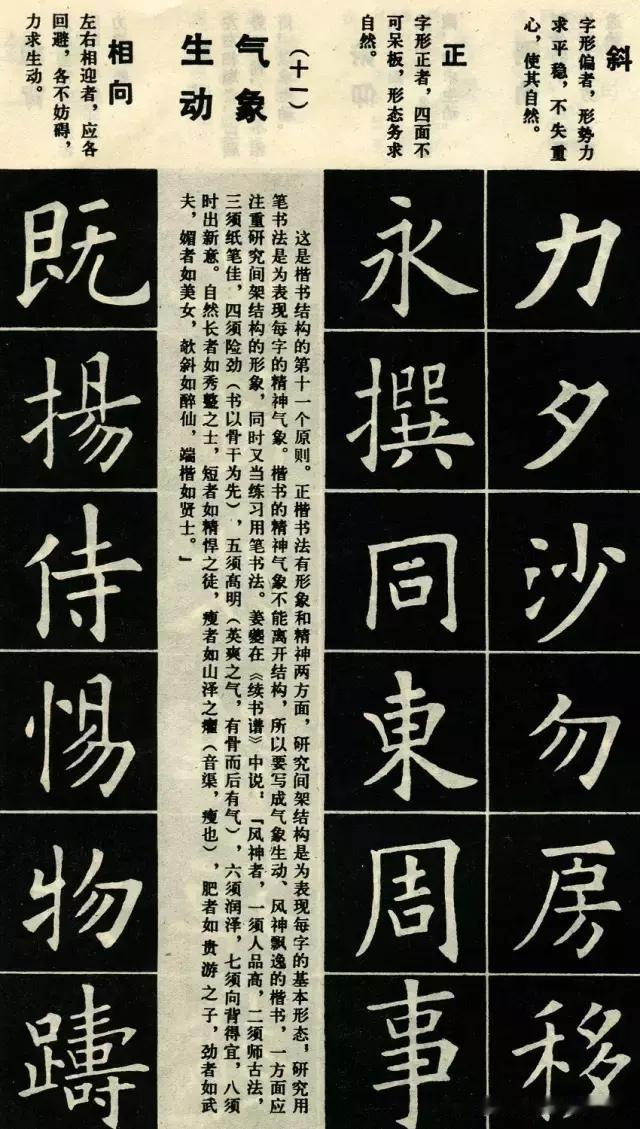 斜
字形偏者，形势力
求平稳，不失重
心，使其自然。
力夕沙勿房移
正
字形正者，四面不
可呆板，形态务求
自然。
永撰同東周事
（十一）
气象
生动
这是楷书结构的第十一个原则。正楷书法有形象和精神两方面，研究间架结构是为表现每字的基本形态，研究用
笔书法是为表现每字的精神气象。楷书的精神气象不能离开结构，所以要写成气象生动、风神飘逸的楷书，一方面应
注重研究间架结构的形象，同时又当练习用笔书法。姜夔在《续书谱》中说：「风神者，一须人品高，二须师古法，
三须纸笔佳，四须险劲（书以骨干为先），五须高明（英爽之气，有骨而后有气），六须润泽，七须向背得宜，八须
时出新意。自然长者如秀整之士，短者如精悍之徒，瘦者如山泽之癯（音渠，瘦也），肥者如贵游之子，劲者如武
夫，媚者如美女，欹斜如醉仙，端楷如贤士。」
相向
左右相迎者，应各
回避，各不妨碍，
力求生动。
既揚侍惕物躊